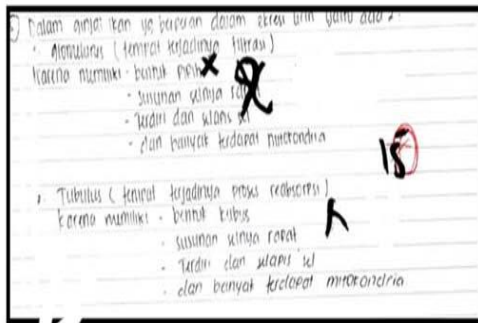 Dalam ginjal ikan yg berperan dalam ekresi urin yaitu ada 2:
• glomelurus (tempat terjadinya filtrasi)
karena memiliki - bentuk pipih
- susunan selnya rapat
- Terdiri dari selapis sel
- dan banyak terdapat mitotondria
15
• Tubullus (tempat terjadinya proses reabsorpsi)
karena memiliki - bentuk kubus
- susunan selnya rapat
- Terdiri dari selapis sel
- dan banyak terdapat mitotondria